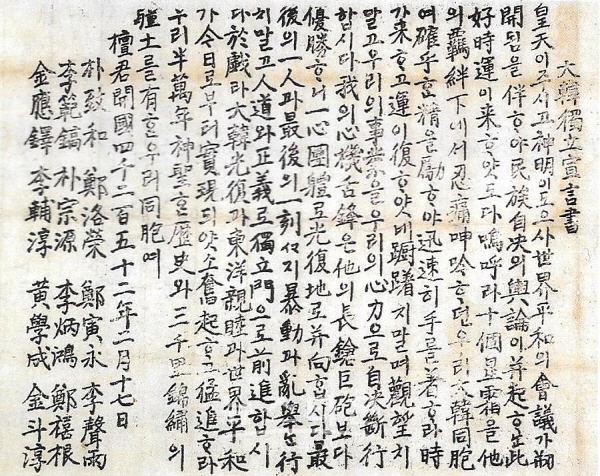 大韓獨立宣言書
皇天이주시고神明이도으사世界平和의會議가初
開됨을伴하야民族自決의輿論이并起하얏此
好時運이來하얏도다嗚呼라十個星霜을他
의羈絆下에서忍痛呻吟하던우리大韓同胞
여確乎하精을勵하야迅速히手를着하라時
가来하고運이復하얏네躕躇치말며觀望치
말고우리의事業을우리의心力으로自决斷行
합시다我의心機舌鋒은他의長鎗巨砲보다
優勝하니一心團體로光復地로并向합시다最
後의一人과最後의一刻까지暴動과亂擧는行
치말고人道와正義로獨立門으로前進합시
다於戱라大韓光復과東洋親睦과世界平和
가今日로부터實現되얏소奮起하고猛進하라
우리半萬年神聖한歷史와三千里錦繡의
疆土를有한우리同胞여
檀君開國四千二百五十二年二月十七日
朴致和 鄭洛榮 鄭寅永 李聲雨
李範鎬 朴宗源 李炳鴻 鄭禧根
金應鐸 李輔淳 黃學成 金斗淳